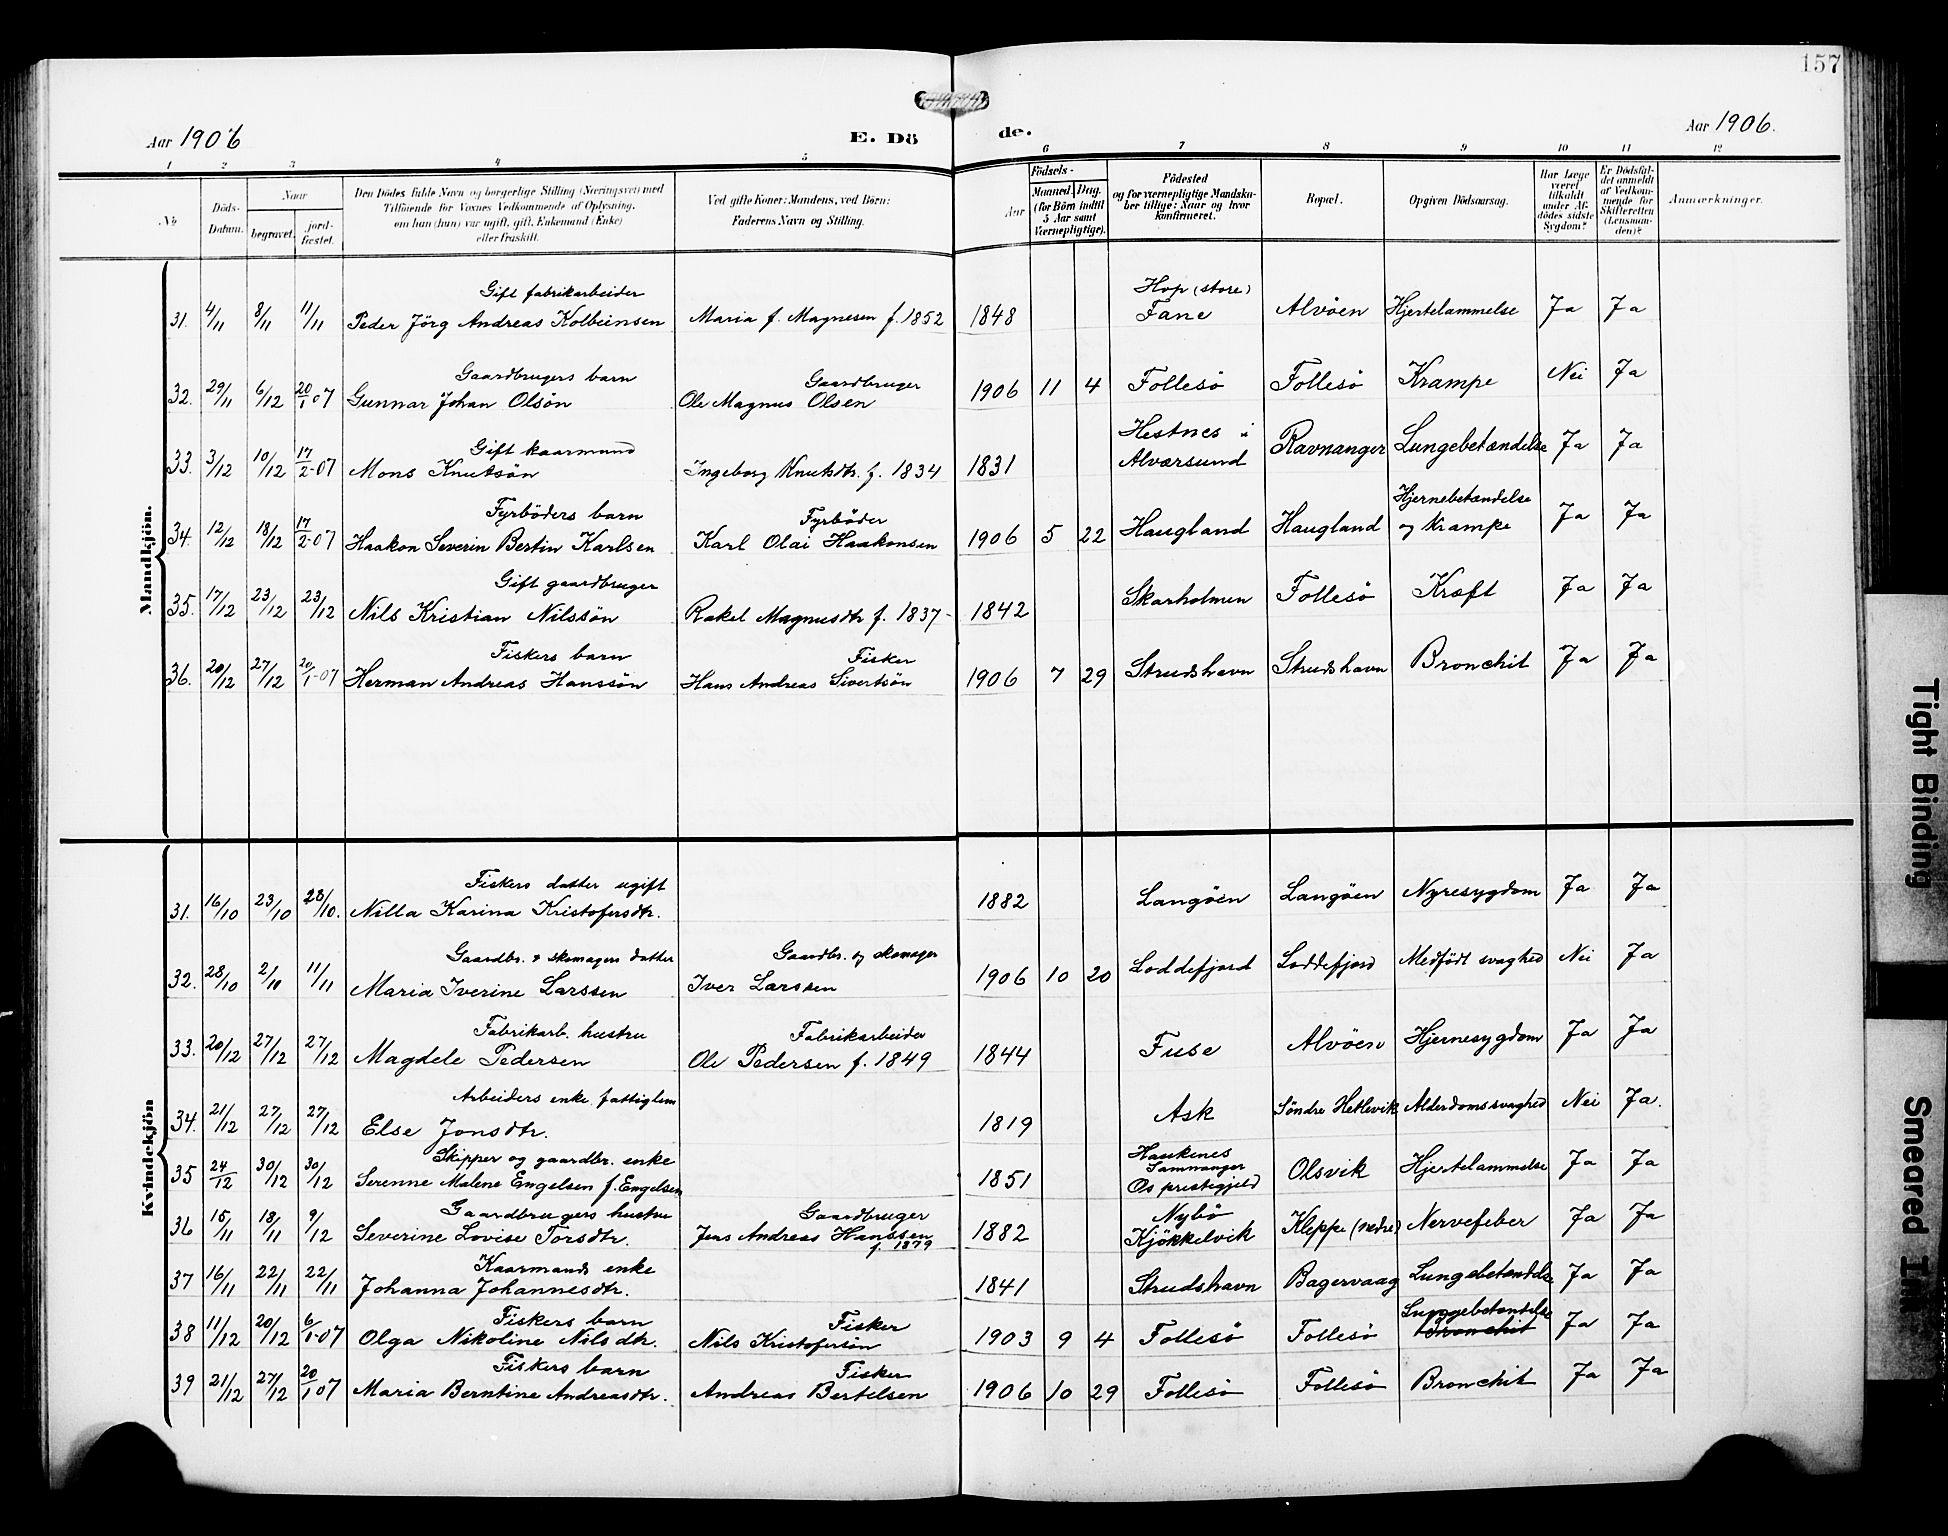 157
Aar 1906
E. Dö
de.
Aar 1906.
1 2 3 4 5 6 7 8 9 10 11 12
No
Döds-Datum.
Naar
begravet.
jord-fæstet.
Den Dödes fulde Navn og borgerlige Stilling (Næringsvei) med
Tilföiende for Voxnes Vedkommende af Oplysning,
om han (hun) var ugift, gift, Enkemand (Enke)
eller fraskilt.
Ved gifte Koner: Mandens, ved Börn:
Faderens Navn og Stilling.
Födsels-
Aar
Maaned. Dag.
(for Börn indtil
5 Aar samt
Værnepligtige).
Födested
og for værnepligtige Mandska-
ber tillige: Naar og hvor
konfirmeret.
Bopæl.
Opgiven Dödsaarsag.
Har Læge
været
tilkaldt
under Af-
dödes sidste
Sygdom?
Er Dödsfal-
det anmeldt
af Vedkom-
mende for
Skifteretten
(Lensman-
den)?
Anmærkninger.
Mandkjön.
Gift fabrikarbeider Hop (store)
31. 4/11 8/11 11/11 Peder Jörg Andreas Kolbeinsen Maria f. Magnesen f. 1852 1848 Fane Alvöen Hjertelammelse Ja Ja
Gaardbrugers barn Gaardbruger
32. 29/11 6/12 20/1 07 Gunnar Johan Olsön Ole Magnus Olsen 1906 11 4 Follesö Follesö Krampe Nei Ja
Gift kaarmand Hestnes i
33. 3/12 10/12 17/2-07 Mons Knutsön Ingeborg Knutsdtr. f. 1834 1831 Alværsund Ravnanger Lungebetændelse Ja Ja
Fyrböders barn Fyrböder Hjernebetændelse
34. 12/12 18/12 17/2-07 Haakon Severin Bertin Karlsen Karl Olai Haakonsen 1906 5 22 Haugland Haugland og Krampe Ja Ja
Gift gaardbruger
35. 17/12 23/12 23/12 Nils Kristian Nilssön Rakel Magnusdtr f. 1837- 1842 Skarholmen Follesö Kræft Ja Ja
Fiskers barn Fisker
36. 20/12 27/12 20/1-07 Herman Andreas Hanssön Hans Andreas Sivertsön 1906 7 29 Strudshavn Strudshavn Bronchit Ja Ja
Kvindekjön
Fiskers datter ugift
31. 16/10 23/10 28/10. Nilla Karina Kristofersdtr. 1882 Langöen Langöen Nyresygdom Ja Ja
Gaardbr. & skomagers datter Gaardbr. og skomager
32. 28/10 2/10 11/11 Maria Iverine Larssen Iver Larssen 1906 10 20 Loddefjord Loddefjord Medfödt svaghed Nei Ja
Fabrikarb. hustru Fabrikarbeider
33. 20/12 27/12 27/12 Magdele Pedersen Ole Pedersen f. 1849 1844 Fuse Alvöen Hjernesygdom Ja Ja
Arbeiders enke, fattiglem
34. 21/12 27/12 27/12 Else Jonsdtr. 1819 Ask Söndre Hetlevik Alderdomssvaghed Nei Ja.
Skipper og gaardbr. enke Haukenes
Samnanger
35 24/12 30/12 30/12 Serenne Malene Engelsen f. Engelsen 1851 Os prestegjeld Olsvik Hjertelammelse Ja Ja
Gaardbrugers hustru Gaardbruger Nybö
36 15/11 18/11 9/12 Severine Lovise Torsdtr. Jens Andreas Hanssen f. 1879 1882 Kjökkelvik Kleppe (nedre) Nervefeber Ja Ja
Kaarmands enke
37 16/11 22/11 22/11 Johanna Johannesdtr. 1841 Strudshavn Bagervaag Lungebetændelse Ja Ja
Fiskers barn Fisker Lungebetændelse
38 11/12 20/12 6/1-07 Olga Nikoline Nilsdtr. Nils Kristofersön 1903 9 4 Follesö Follesö Bronchit Ja Ja
Fiskers barn Fisker
39 21/12 27/12 20/1 07 Maria Berntine Andreasdtr. Andreas Bertelsen 1906 10 29 Follesö Follesö Bronchit Ja Ja
Tight Binding
Smeared Ink